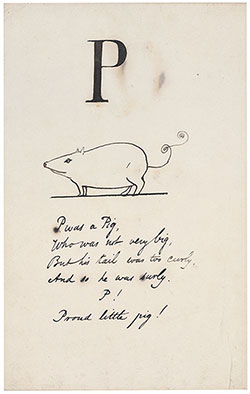 P
P was a Pig,
Who was not very big,
But his tail was too curly,
And so he was surly.
P!
Proud little pig!